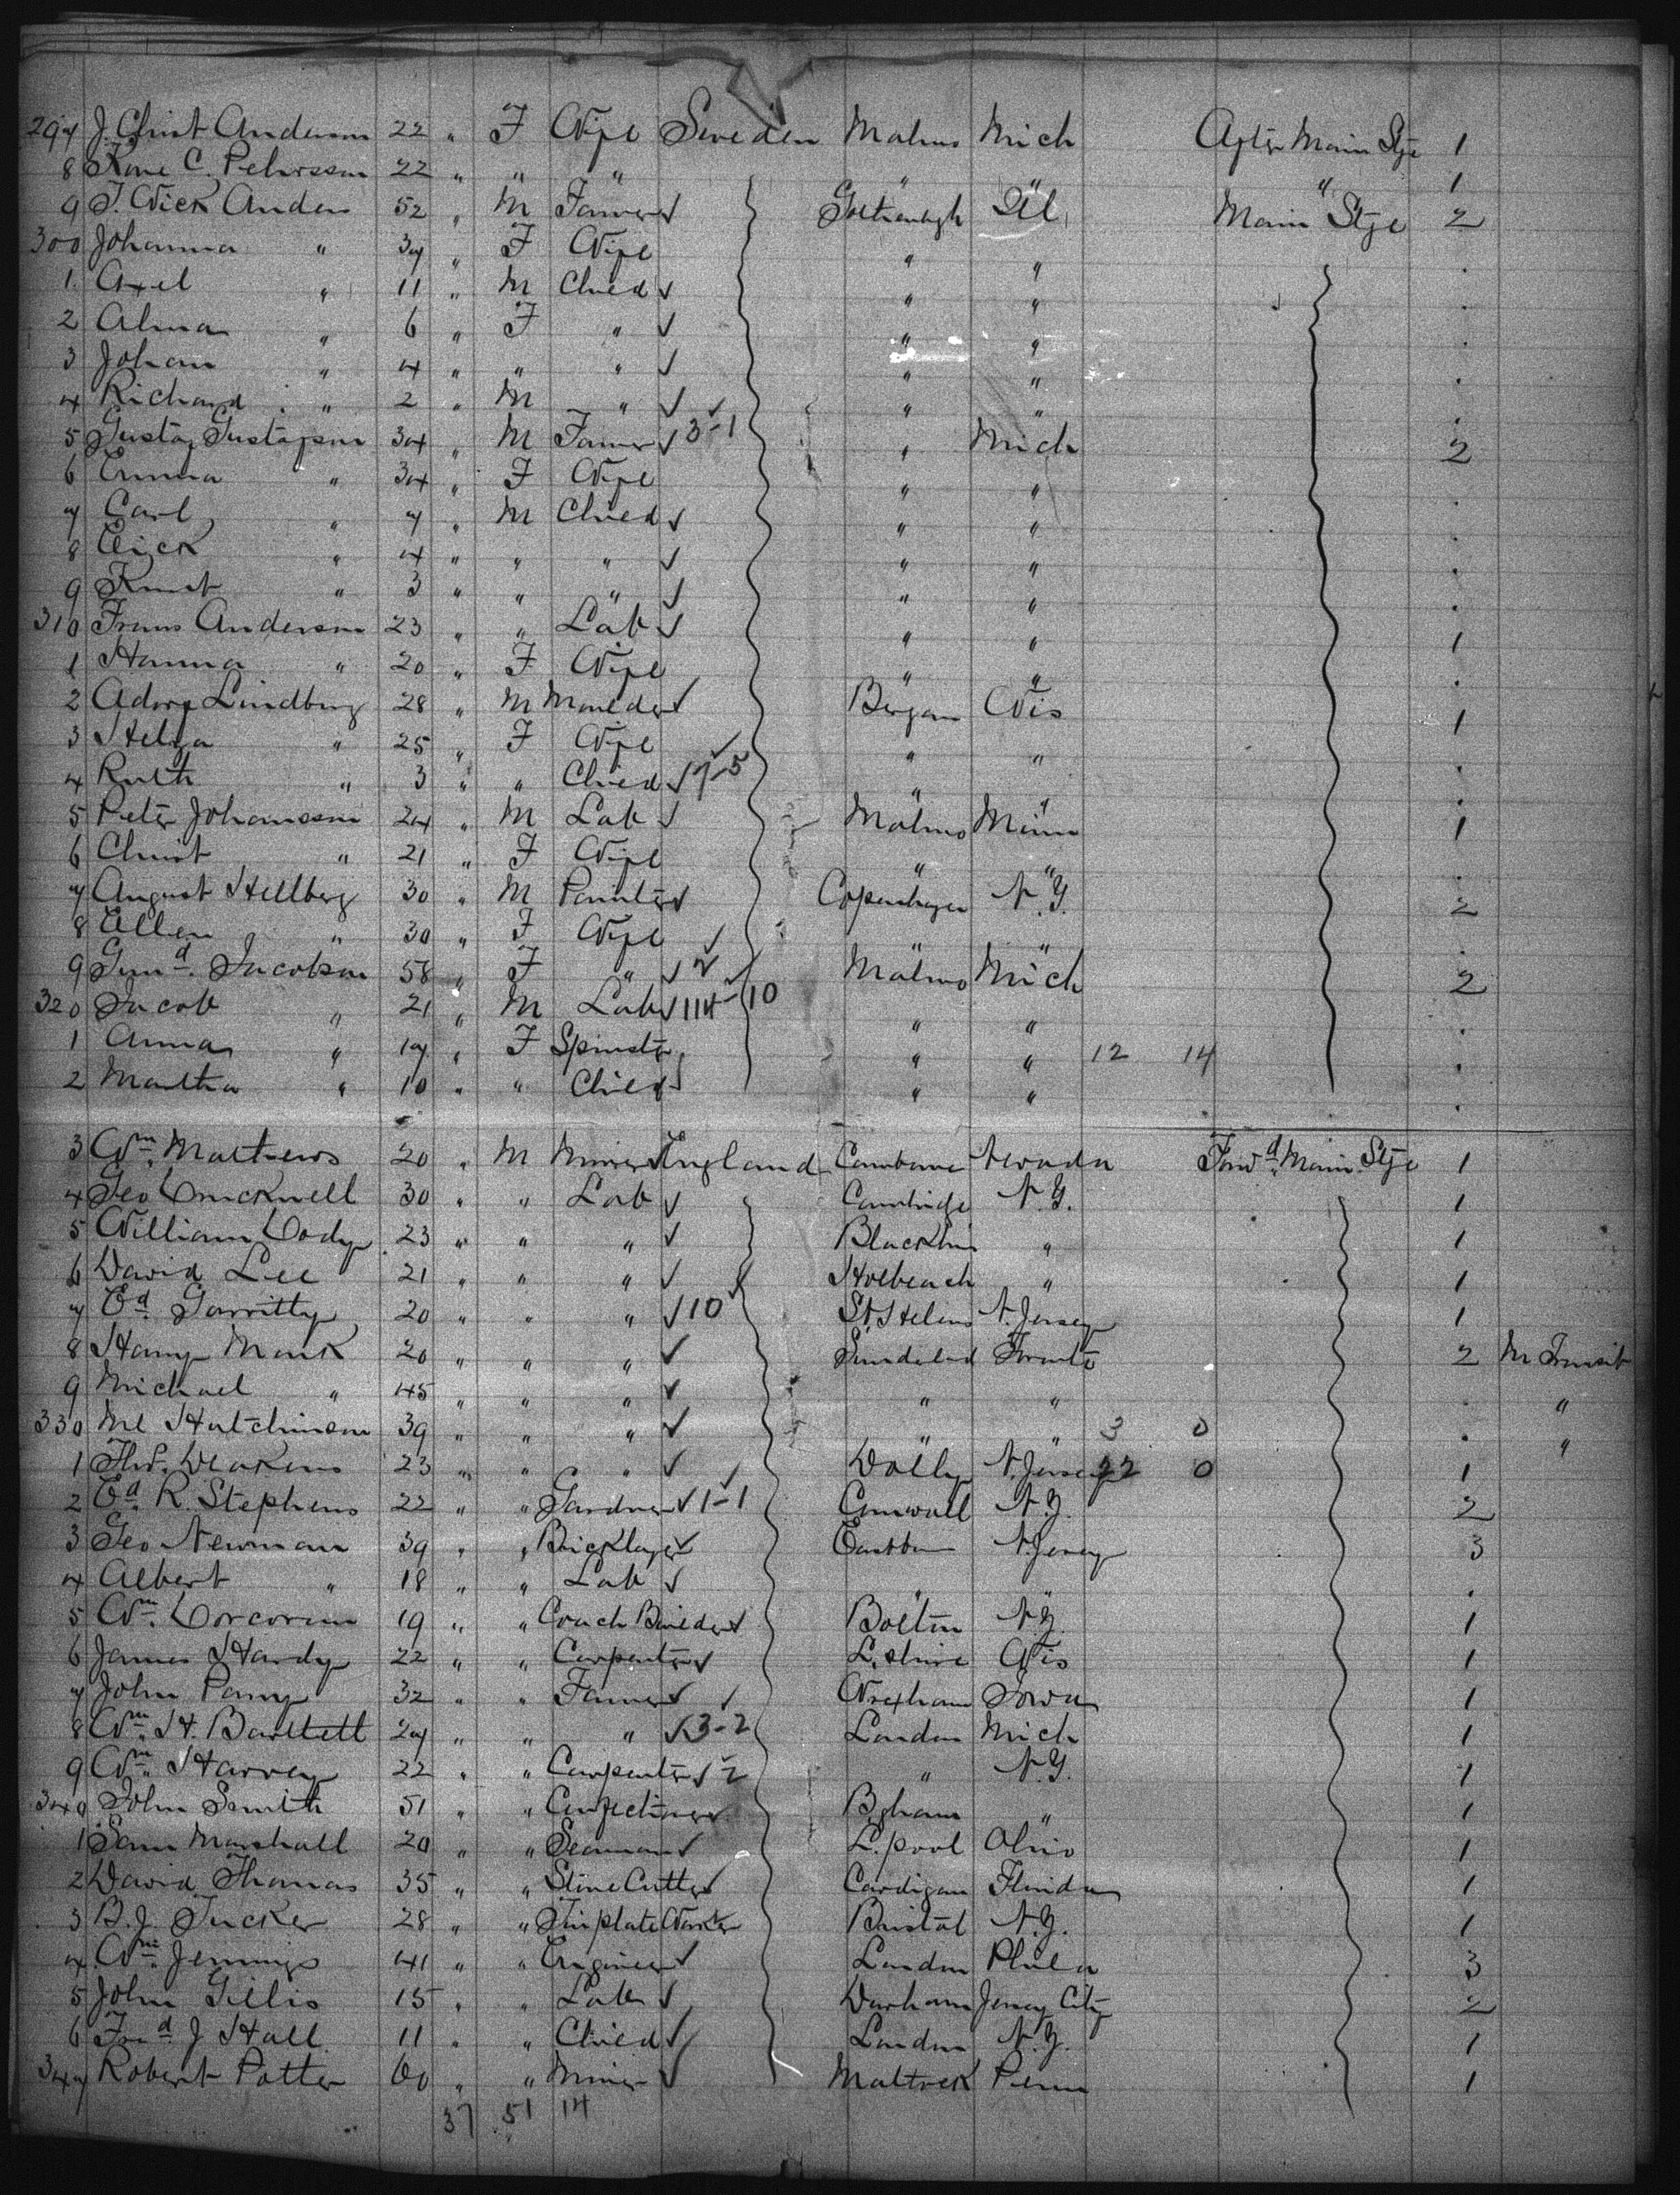 297 J. Christ Anderson 22 " F Wife Sweden Malmo Mich After Main Stge 1
8 C. Pehrsson 22 " " " " " " 1
9 J. Wick Anders 52 " M Farmer Gothenburgh Ill Main Stge 2
300 Johanna " 37 " F Wife " "
1 Axel " 11 " M Child " "
2 Alma " 6 " F " " "
3 Johan " 4 " " " " "
4 Richard " 2 " M " " "
5 Gustaf Gustafson 34 " M Farmer 3-1 " Mich 2
6 Emma " 34 " F Wife " "
7 Carl " 7 " M Child " "
8 " 4 " " " " "
9 Knut " 3 " " " " "
310 Frans Anderson 23 " " Lab " " 1
1 Hanna " 20 " F Wife " "
2 Adorf Lindberg 28 " M Moulder Bergan Wis 1
3 Helga " 25 " F Wife " "
4 Ruth " 3 " " Child 7-5 " "
5 Peter Johansson 24 " M Lab Malmo Minn 1
6 Christ " 21 " F Wife " "
7 August Hellberg 30 " M Painter Copenhagen N.Y. 2
8 Ellen " 30 " F Wife " "
9 Jacobson 58 " F " 2 Malmo Mich 2
320 Jacob " 21 " M Lab 114-10 " "
1 Anna " 17 " F Spinster " " 12 14
2 Martha " 10 " " Child " "
3 Wm. Mathews 20 " M Miner England Camborne Nevada Forwd. Main Stge 1
4 Geo Cruckwell 30 " " Lab Cambridge N.Y. 1
5 William Cody 23 " " " Blackburn " 1
6 David Lee 21 " " " Holbeach " 1
7 Ed Garritty 20 " " " 10 St. Helens N. Jersey 1
8 Harry Monk 20 " " " Sunderland Toronto 2 In Transit
9 Michael " 45 " " " " " "
330 Ml Hutchinson 39 " " " " " 3 0 "
1 Thos. Deakins 23 " " " Dolly N. Jersey 22 0 1
2 Ed R. Stephens 22 " " Gardner 1-1 Cornwall N.Y. 2
3 Geo Newman 39 " " Bricklayer N. Jersey 3
4 Albert " 18 " " Lab " "
5 Wm. Corcoran 19 " " Coach Builder Bolton N.Y. 1
6 James Hardy 22 " " Carpenter L.shire Wis 1
7 John Parry 32 " " Farmer Wrexham Iowa 1
8 Wm. H. Bartlett 27 " " " 3-2 London Mich 1
9 Wm. Harvey 22 " " Carpenter 2 " N.Y. 1
340 John Smith 51 " " Confectioner B.gham " 1
1 Sam Marshall 20 " " Seaman L.pool Ohio 1
2 David Thomas 35 " " Stone Cutter Cardigan Florida 1
3 B.J. Tucker 28 " " Tin plate Worker Bristol N.Y. 1
4 Wm. Jennings 41 " " Engineer London Phila 3
5 John Gillis 15 " " Lab Durham Jersey City 2
6 Fred J Hall 11 " " Child London N.Y. 1
347 Robert Potter 60 " " Miner Penn 1
37 51 14